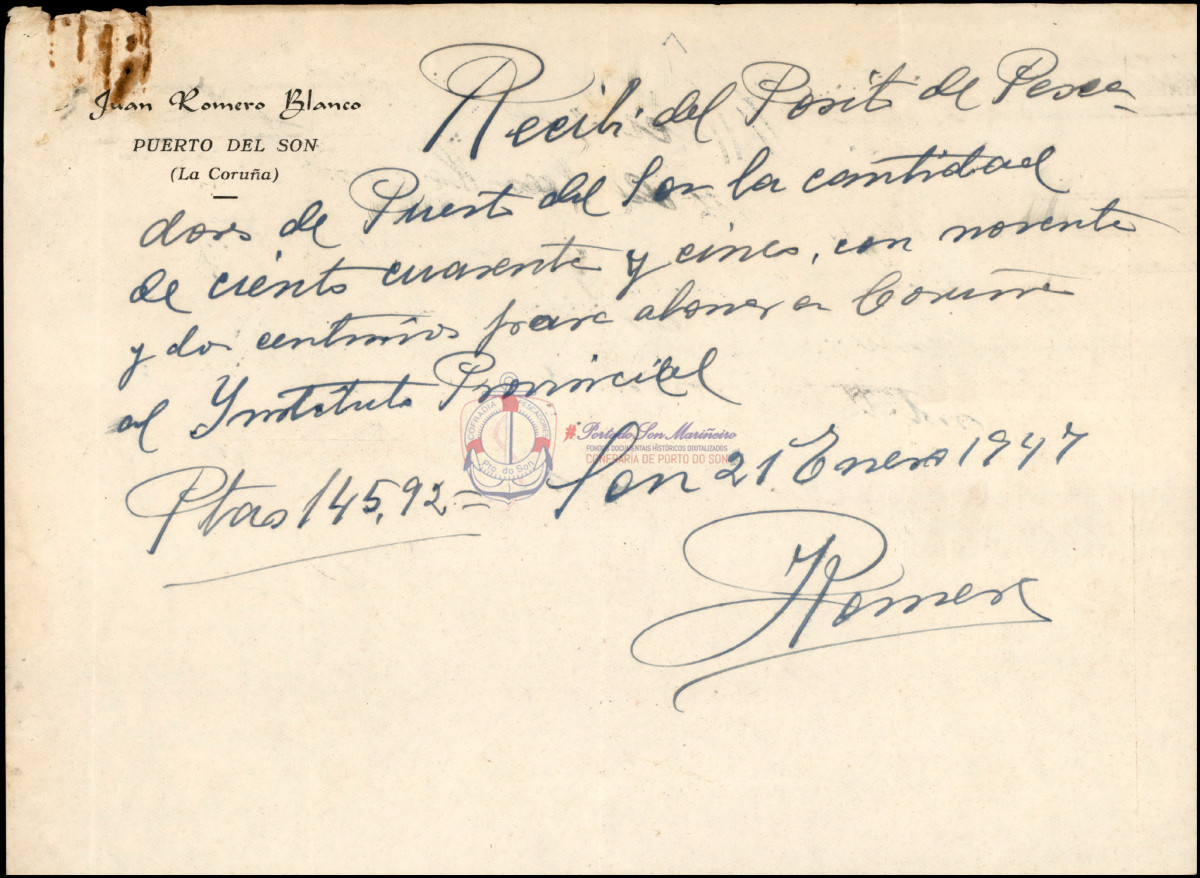 Juan Romero Blanco
PUERTO DEL SON
(La Coruña)
Recibí del Posito de Pesca-
dores de Puerto del Son la cantidad
de ciento cuarenta y cinco, con noventa
y dos centimos para abonar en Coruña
al Ynstituto Provincial
COFRADIA PESCADORES
Pto. do Son
#Porto do Son Mariñeiro
FONDOS DOCUMENTAIS HISTÓRICOS DIXITALIZADOS
CONFRARÍA DE PORTO DO SON
Ptas 145,92= Son 21 Enero 1947
JRomero